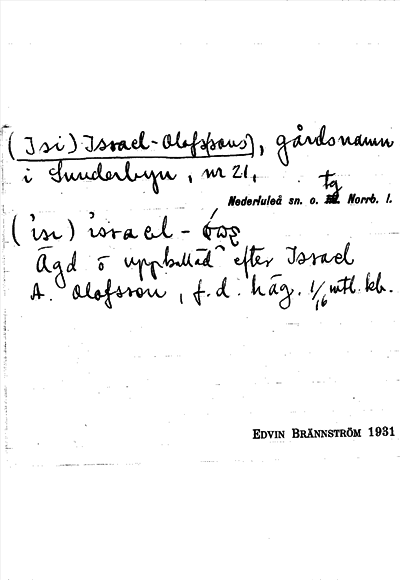 (Isi) Israel-Olofs(sons), gårdsnamn
i Sunderbyn, nr 21,
tg
Nederluleå sn. o. Norrb. l.
(isi) israel-
Ägd o uppkallad efter Israel
A. Olofsson, f.d. häg. 1/16 mtl. kb.
EDVIN BRÄNNSTRÖM 1931